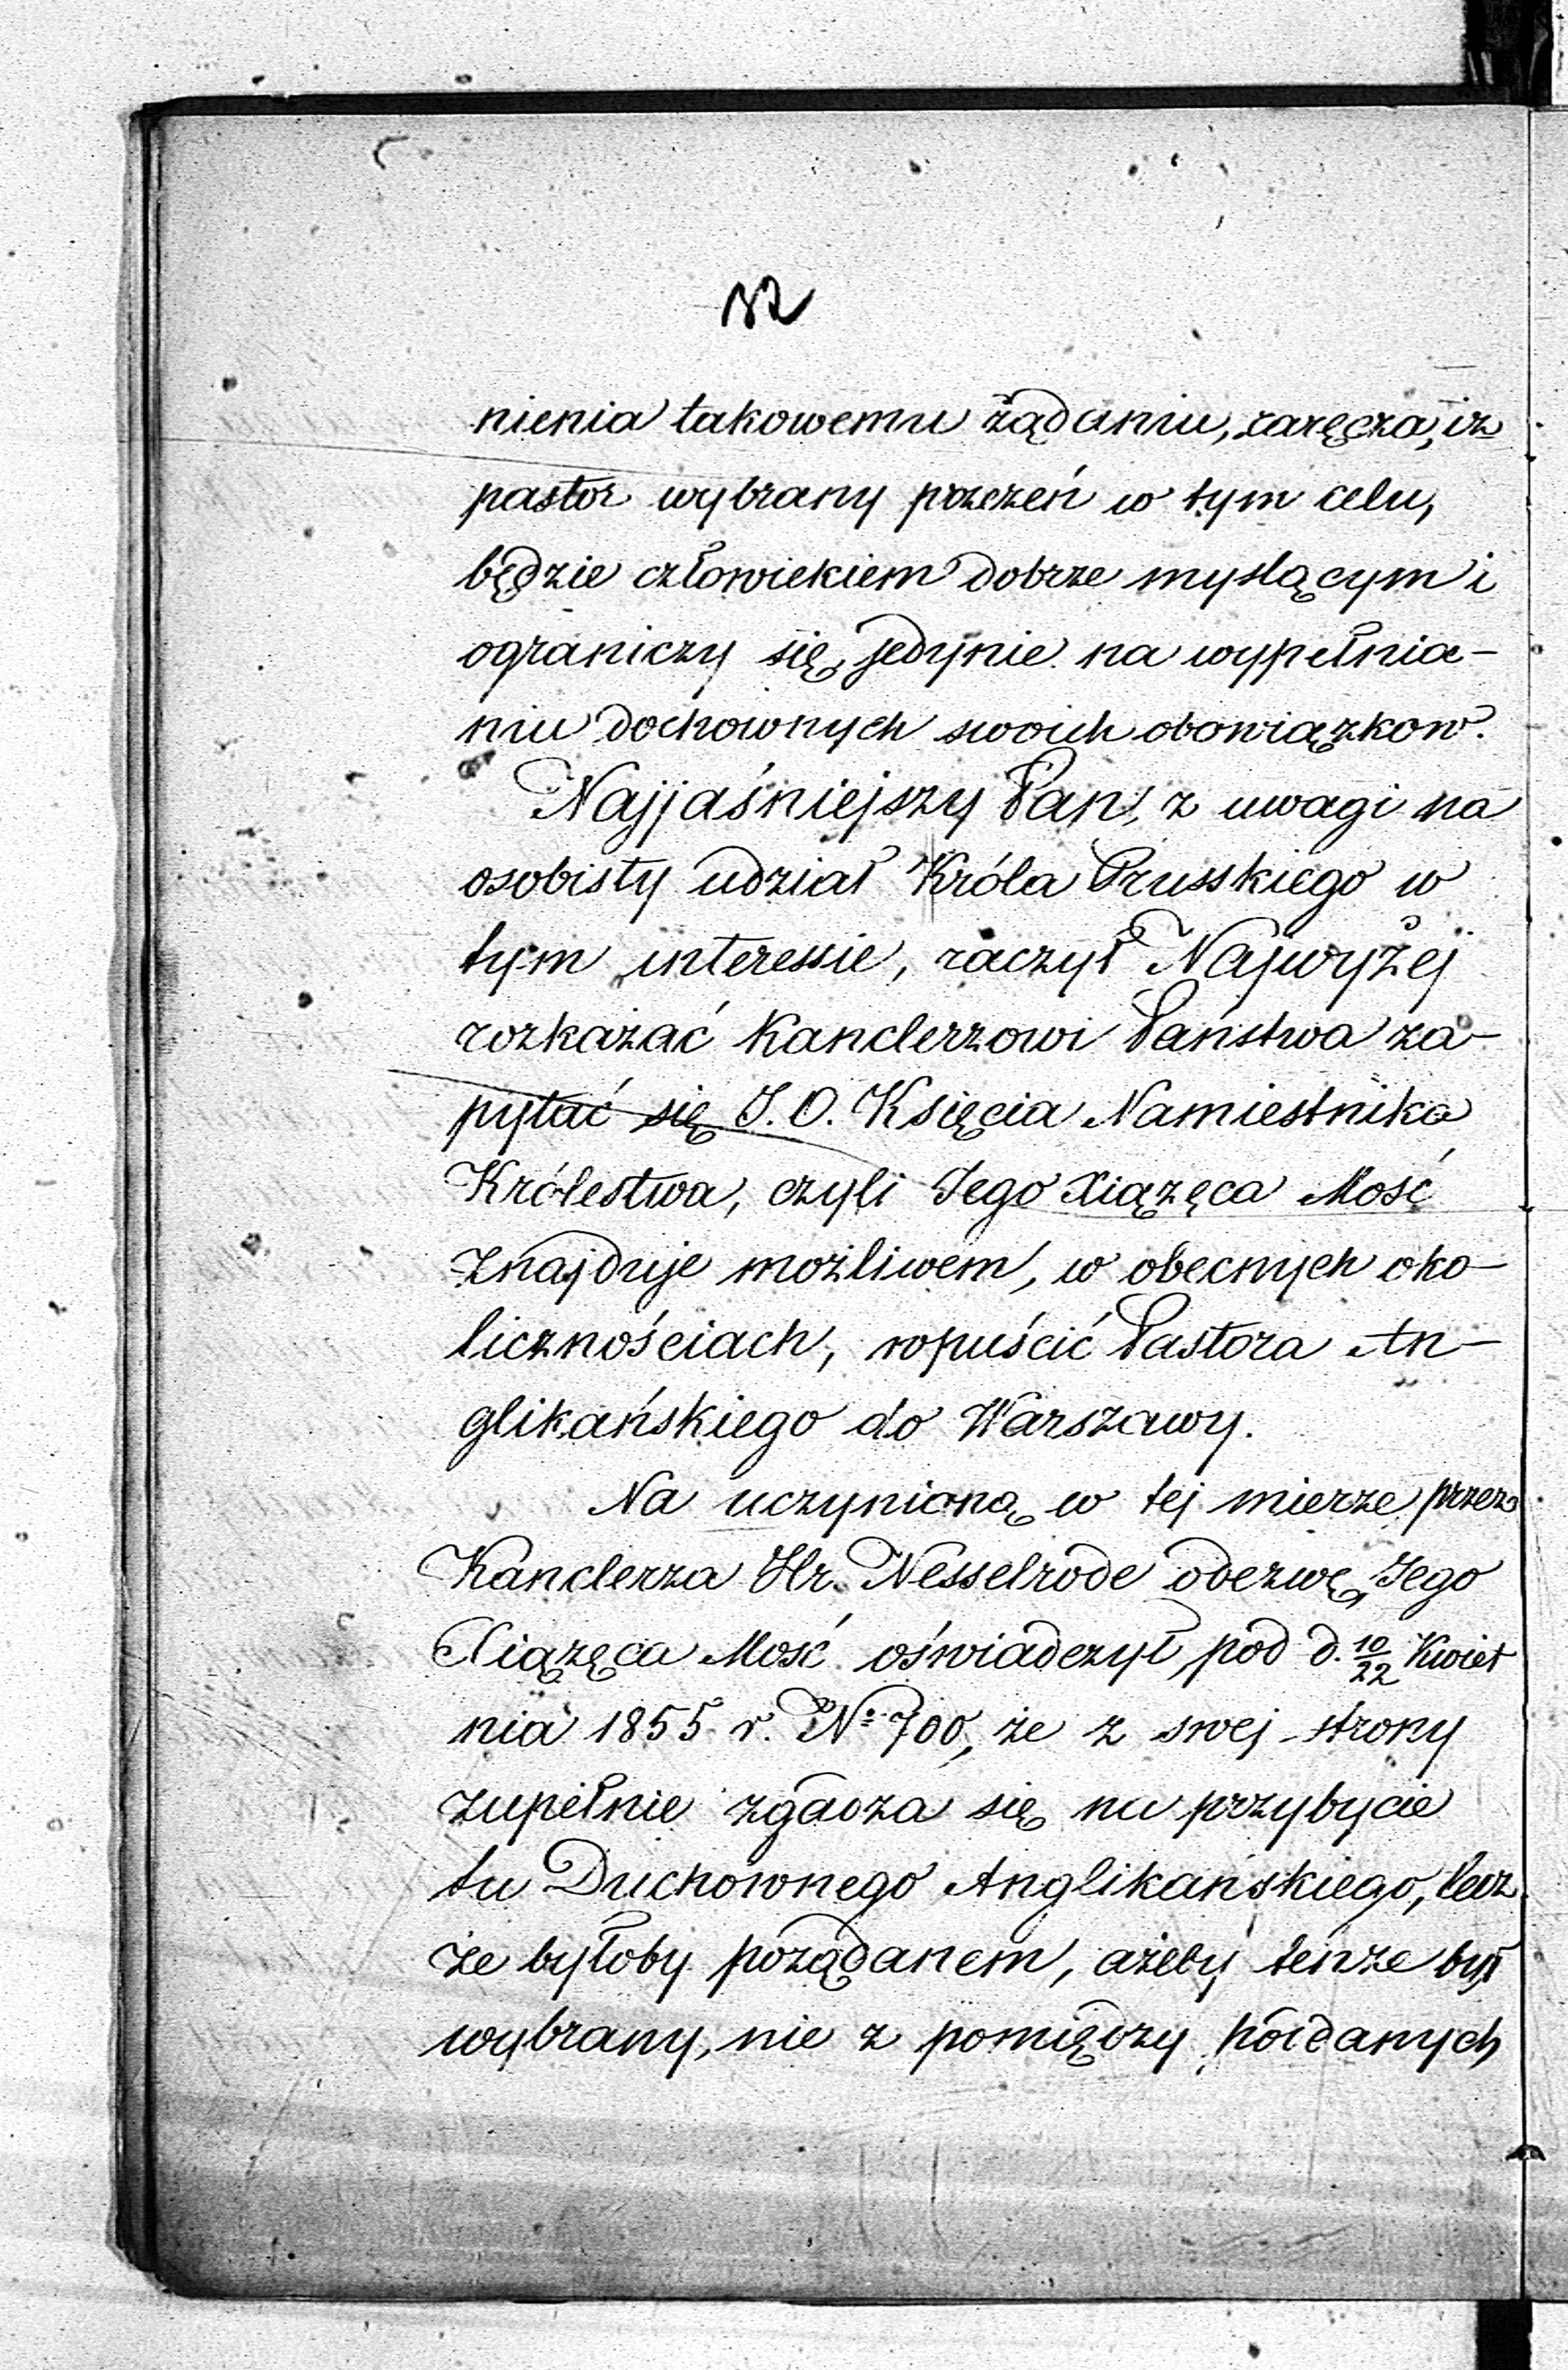 nienia takowemu żądaniu, zaręcza, iż
pastor wybrany przezeń w tym celu,
będzie człowiekiem dobrze myslącym i
ograniczy się jedynie na wypełnia-
niu dochownych swoich obowiązkow.
Najjaśniejszy Pan, z uwagi na
osobisty udział Króla Prusskiego w
tym interessie, raczył Najwyżej
rozkazać Kanclerzowi Państwa za-
pytać się J. O. Księcia Namiestnika
Królestwa, czyli Jego Xiążęca Mość
znajduje możliwem, w obecnych oko-
licznościach, wpuścić Pastora An-
glikańskiego do Warszawy.
Na uczynioną w tej mierze przez
Kanclerza Hr. Nesselrode odezwę, Jego
Xiążęca Mość oświadczył pod d. 10/22 Kwiet
nia 1855 r. Nº 700, że z swej strony
zupełnie zgadza się na przybycie
tu Duchownego Anglikańskiego, lecz
że byłoby pożądanem, ażeby tenże był
wybrany, nie z pomiędzy poddanych